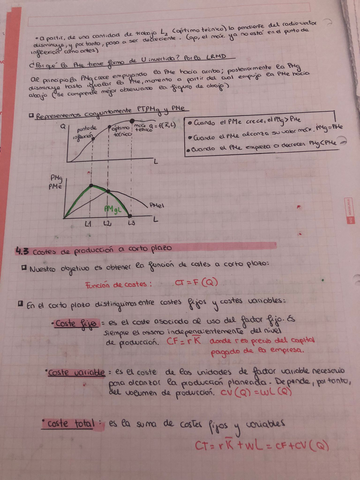 • A partir, de una cantidad de trabajo L2 (óptimo técnico) la pendiente del radio vector
disminuye, y por tanto, pasa a ser decreciente. (aquí, el max. ya no está en el punto de
inflexión como antes)
¿Por qué la PMe tiene forma de U invertida? Por la LRMD.
Al principio PMg crece empujando la PMe hacia arriba; posteriormente la PMg
disminuye hasta igualar la PMe, momento a partir del cual empuja la PMe hacia
abajo (se comprende mejor observando la figura de abajo)
Representamos conjuntamente PT, PMg y PMe
Q
punto de
inflexión
óptimo
técnico
máx
técnico
Q = f(K̄, L)
L
• Cuando el PMe crece, el PMg > PMe
• Cuando el PMe alcanza su valor máx, PMg = PMe
• Cuando el PMe empieza a decrecer, PMg < PMe
PMg
PMe
PMgL
PMeL
L1 L2 L3 L
4.3 Costes de producción a corto plazo
Nuestro objetivo es obtener la función de costes a corto plazo:
Función de costes: CT = F(Q)
En el corto plazo distinguimos entre costes fijos y costes variables:
• Coste fijo: es el coste asociado al uso del factor fijo. Es
siempre el mismo independientemente del nivel
de producción. CF = rK̄ donde r es precio del capital
pagado de la empresa.
• Coste variable: es el coste de las unidades de factor variable necesario
para alcanzar la producción planeada. Depende, por tanto,
del volumen de producción. CV(Q) = WL(Q)
• Coste total: es la suma de costes fijos y variables
CT = rK̄ + WL = CF + CV(Q)